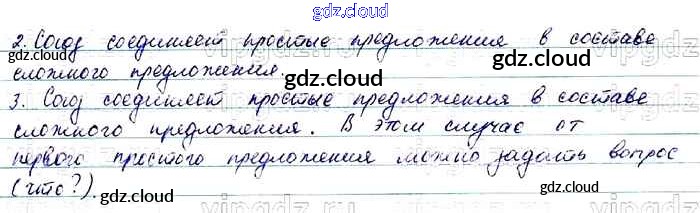 gdz.cloud
2. Союз соединяет простые предложения в составе
сложного предложения. gdz.cloud
gdz.cloud
3. Союз соединяет простые предложения в составе
сложного предложения. В этом случае от
gdz.cloud gdz.cloud
первого простого предложения можно задать вопрос
(что?). gdz.cloud gdz.cloud